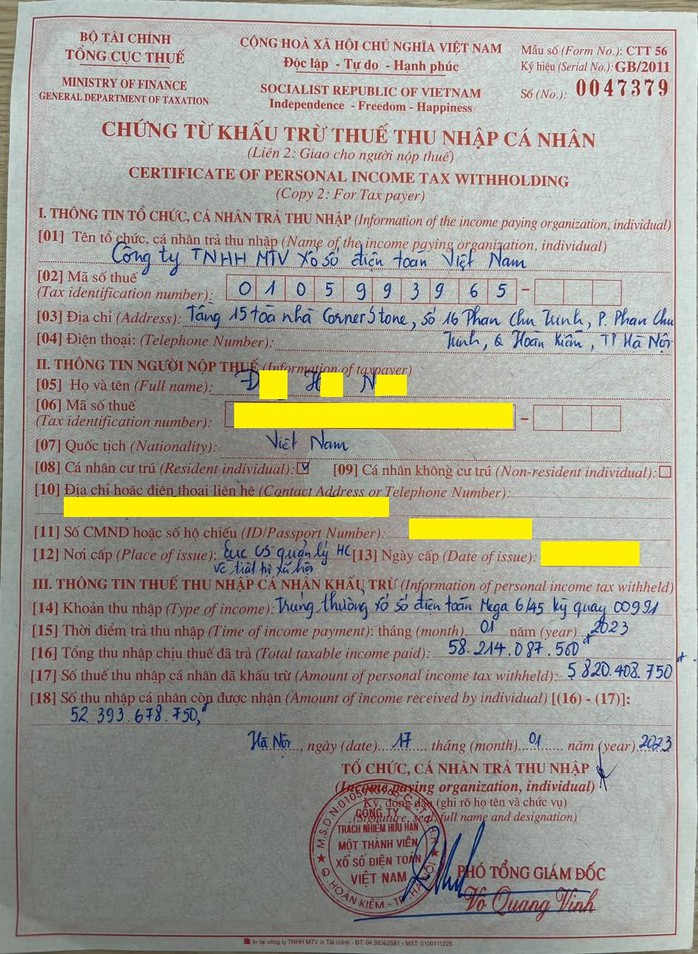 BỘ TÀI CHÍNH
TỔNG CỤC THUẾ
MINISTRY OF FINANCE
GENERAL DEPARTMENT OF TAXATION
CỘNG HOÀ XÃ HỘI CHỦ NGHĨA VIỆT NAM
Độc lập - Tự do - Hạnh phúc
SOCIALIST REPUBLIC OF VIETNAM
Independence - Freedom - Happiness
Mẫu số (Form No.): CTT 56
Ký hiệu (Serial No.): GB/2011
Số (No.): 0047379
CHỨNG TỪ KHẤU TRỪ THUẾ THU NHẬP CÁ NHÂN
(Liên 2: Giao cho người nộp thuế)
CERTIFICATE OF PERSONAL INCOME TAX WITHHOLDING
(Copy 2: For Tax payer)
I. THÔNG TIN TỔ CHỨC, CÁ NHÂN TRẢ THU NHẬP (Information of the income paying organization, individual)
[01] Tên tổ chức, cá nhân trả thu nhập (Name of the income paying organization, individual)
Công ty TNHH MTV Xổ số điện toán Việt Nam
[02] Mã số thuế
(Tax identification number): 0105993965 -
[03] Địa chỉ (Address): Tầng 15 toà nhà CornerStone, số 16 Phan Chu Trinh, P. Phan Chu
[04] Điện thoại: (Telephone Number): Trinh, Q Hoàn Kiếm, TP Hà Nội
II. THÔNG TIN NGƯỜI NỘP THUẾ (Information of taxpayer)
[05] Họ và tên (Full name): Đ H N
[06] Mã số thuế
(Tax identification number): -
[07] Quốc tịch (Nationality): Việt Nam
[08] Cá nhân cư trú (Resident individual): [09] Cá nhân không cư trú (Non-resident individual):
[10] Địa chỉ hoặc điện thoại liên hệ (Contact Address or Telephone Number):
[11] Số CMND hoặc số hộ chiếu (ID/Passport Number):
[12] Nơi cấp (Place of issue): Cục CS quản lý HC [13] Ngày cấp (Date of issue):
về trật tự xã hội
III. THÔNG TIN THUẾ THU NHẬP CÁ NHÂN KHẤU TRỪ (Information of personal income tax withheld)
[14] Khoản thu nhập (Type of income): Trúng thưởng xổ số điện toán Mega 6/45 kỳ quay 00991
[15] Thời điểm trả thu nhập (Time of income payment): tháng (month). 01 năm (year) 2023
[16] Tổng thu nhập chịu thuế đã trả (Total taxable income paid): 58.214.087.500đ
[17] Số thuế thu nhập cá nhân đã khấu trừ (Amount of personal income tax withheld): 5820.408.750đ
[18] Số thu nhập cá nhân còn được nhận (Amount of income received by individual) [(16) - (17)]:
52.393.678.750,đ
Hà Nội, ngày (date) 17 tháng (month) 01 năm (year) 2023
TỔ CHỨC, CÁ NHÂN TRẢ THU NHẬP
(Income paying organization, individual)
Ký, đóng dấu (ghi rõ họ tên và chức vụ)
(Signature, seal, full name and designation)
CÔNG TY
TRÁCH NHIỆM HỮU HẠN
MỘT THÀNH VIÊN
XỔ SỐ ĐIỆN TOÁN
VIỆT NAM
Q. HOÀN KIẾM - TP. HÀ NỘI
PHÓ TỔNG GIÁM ĐỐC
Võ Quang Vinh
In tại công ty TNHH MTV In Tài chính - ĐT: 04.38362581 - MST: 0100111225